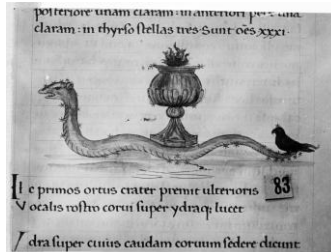 posteriore unam claram: in anteriori pe una
claram: in thyrso stellas tres. Sunt oēs xxxi.
Hic primos ortus crater premit ulterioris
Vocalis rostro corui super ydraq; lucet
83
ydra super cuius caudam coruum sedere dicunt